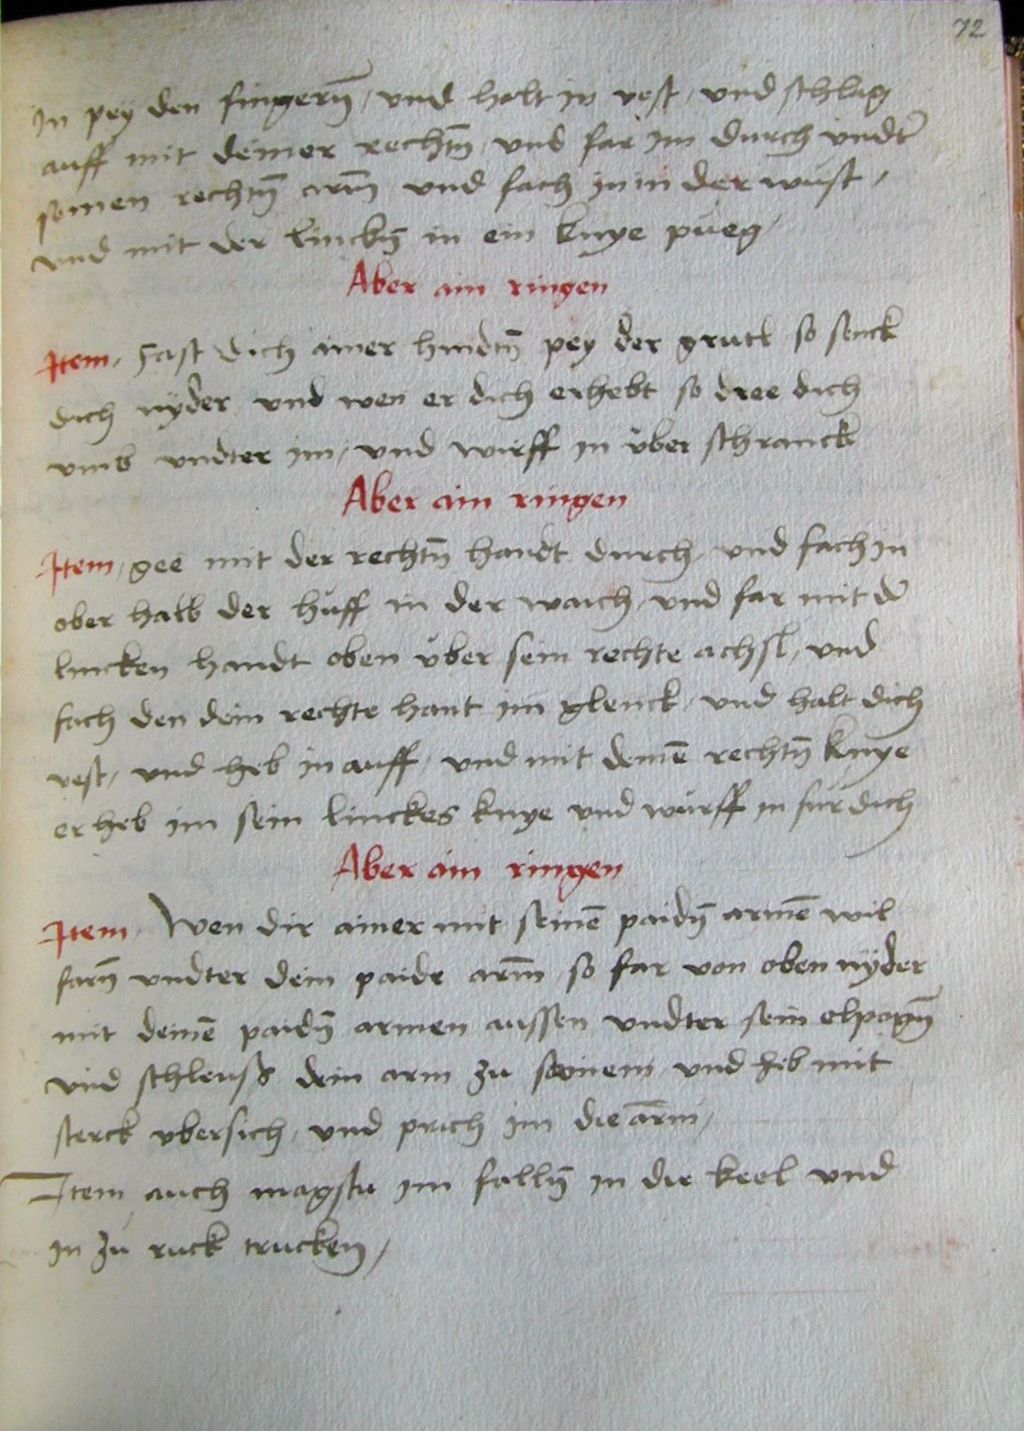 72
In pey den fingerñ / und halt in vest / und schlag
auff mit deiner rechtñ / und far im durch undt̄
seinen rechtñ arm̄ und fach in in der wüst /
und mit der linckñ in ein knye pueg /
Aber ain ringen
Item / Fast dich ainer hindtñ pey der gurtl so senck
dich nÿder und wen er dich erhebt so dree dich
umb undter im / und wirff in über schranck
Aber ain ringen
Item / gee mit der rechtñ handt durch / und fach in
ober halb der hüff in der waich / und far mit d̄
lincken handt oben über sein rechte achsl / und
fach den dein rechte hant im glenck / und halt dich
vest / und heb in auff / und mit deinē rechtñ knye
er heb im sein linckes knye und würff in für dich
Aber ain ringen
Item / Wen dir ainer mit seinē paidñ armē wil
farñ undter dein paide arm̄ so far von oben nÿder
mit deinē paidñ armen aussen undter sein elpogñ
und schleuss dein arm zu seinem / und heb mit
sterck übersich / und prich im die arm̄ /
Item auch magstu im fallñ in die keel und
in zu ruck trucken /